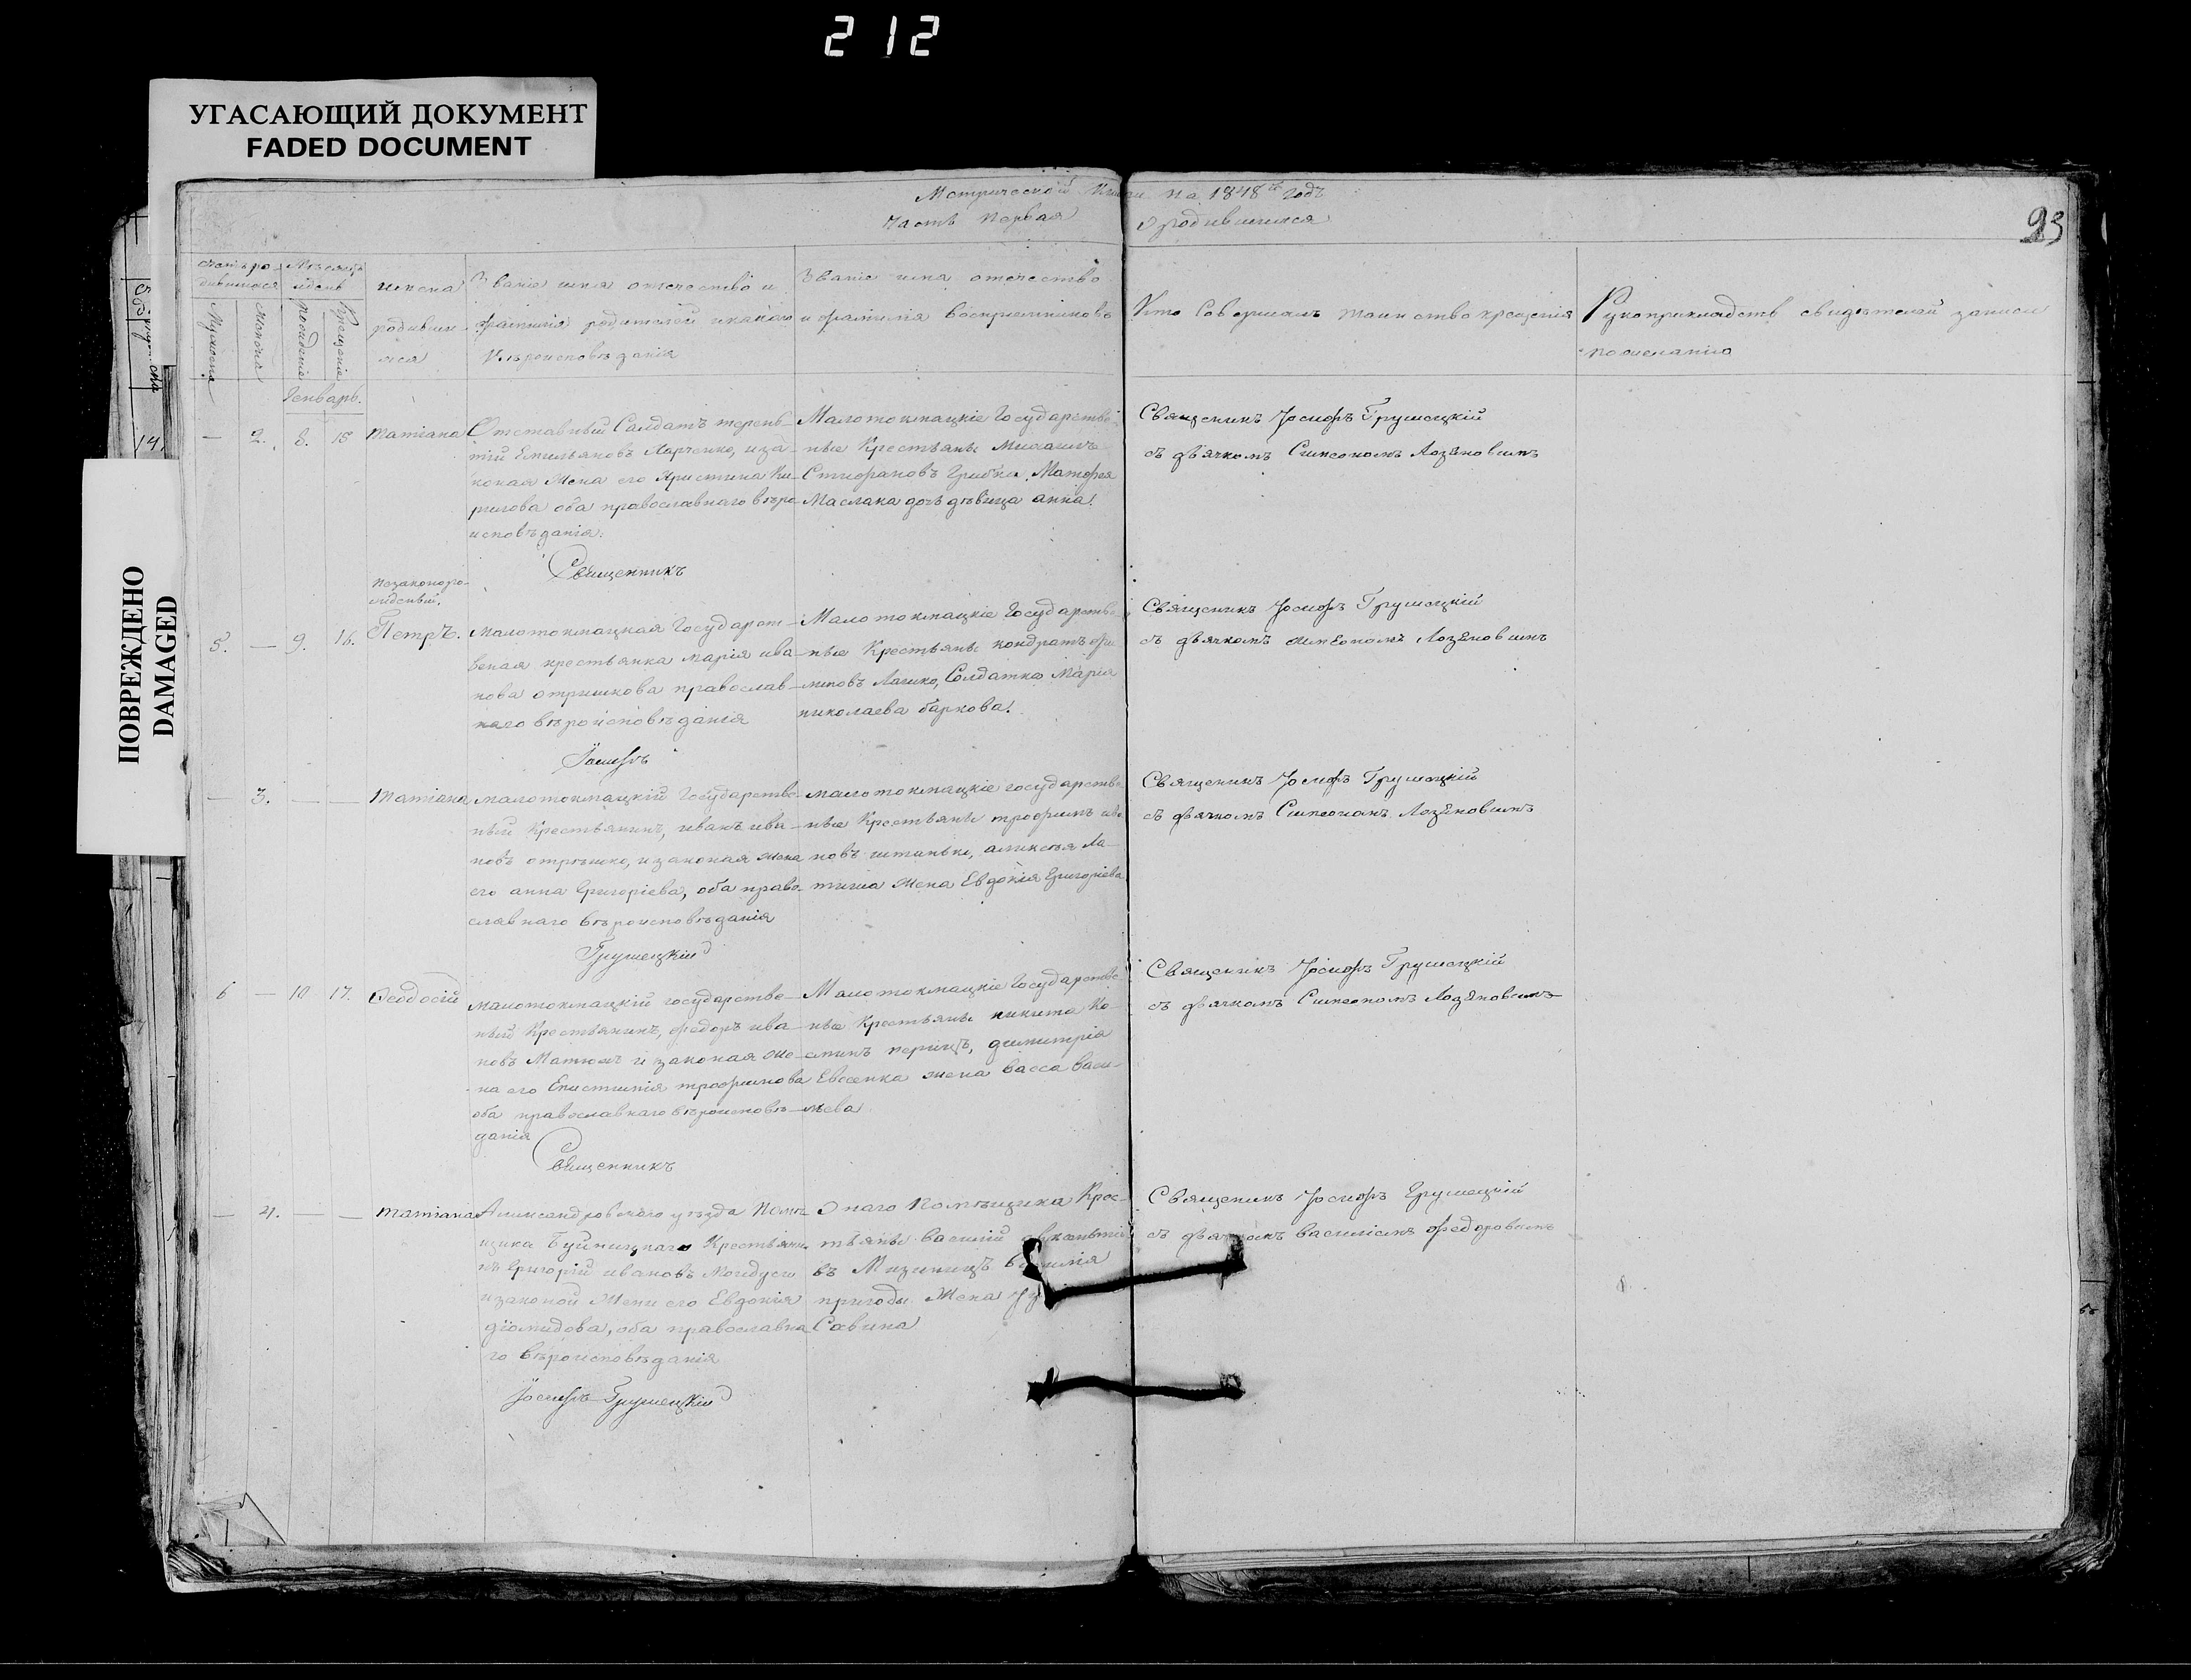 212
УГАСАЮЩИЙ ДОКУМЕНТ
FADED DOCUMENT
ПОВРЕЖДЕНО
DAMAGED
Метрической Книги на 1848й годъ
Часть Первая о родившихся
23
счетъ ро-
дившихся
Мѣсяцъ
и день
Мужеска
Женска
рожденіе
Крещеніе
имена
родивши-
хся
Званіе имя отечество и
фамилія родителей и какого
Вѣроисповѣданія
Званіе имя отечество
и фамилія воспріемниковъ
Кто Совершалъ таинство крещенія
Рукоприкладств свидѣтелей записи
по желанію
Генварь.
— 2. 8. 15 татіана
Отставный Салдатъ терень-
тій Емильяновъ Харченко, и за-
коная жена его Христина Ки-
рилова оба православнаго вѣро
исповѣданія.
Малотокмацкіе Государстве-
ные Крестьяне Михаилъ
Стифановъ Грибка, Матфея
Маслака дочь дѣвица анна.
Священикъ Іосифъ Грушецкій
съ дьячкомъ Симеономъ Лозяновимъ
Священникъ
незаконоро-
жденый.
5. — 9. 16. Петръ.
малотокмацкая Государст-
веная крестьянка марія ива-
нова отришкова православ-
наго вѣроисповѣданія
Малотокмацкіе Государстве-
ные Крестьяне кондратъ фи-
липовъ Лагико, Солдатка Марія
николаева баркова.
Священикъ Іосифъ Грушецкій
съ дьячкомъ симеономъ Лозяновимъ
Іосифъ
— 3. — — татіана
малотокмацкій Государстве-
ный Крестьянинъ, иванъ ива-
новъ отрѣшко, и законая жена
его анна Григоріева, оба право-
славнаго вѣроисповѣданія
малотокмацкіе государстве-
ные Крестьяне трофимъ ива-
новъ, аликсѣя Ла-
тиша жена Евдокія Григоріева
Священикъ Іосифъ Грушецкій
съ дьячкомъ Симеономъ Лозяновимъ
Грушецкій
6 — 10 17. Феодосій
малотокмацкій государстве-
ный Крестьянинъ, федоръ ива-
новъ Матюхъ и законая же-
на его Епистимія трофимова
оба православнаго вѣроисповѣ-
данія
Малотокмацкіе Государстве-
ные Крестьяне никита Ко-
зминъ, димитрія
Евсенка жена васса васи-
льева
Священикъ Іосифъ Грушецкій
съ дьячкомъ Симеономъ Лозяновимъ
Священникъ
— 4. — — татіана
Александровскаго уѣзда Помѣ-
щика Буйницкаго Крестьяни-
нъ Григорій ивановъ
и законой жени его Евдокія
діомидова, оба православна
го вѣроисповѣданія
Онаго Помѣщика Крес-
тьяне василій
въ Мизиницъ
пригоды Жена
Савина
Священикъ Іосифъ Грушецкій
съ дьячкомъ василіемъ федоровымъ
Іосифъ Грушецкій